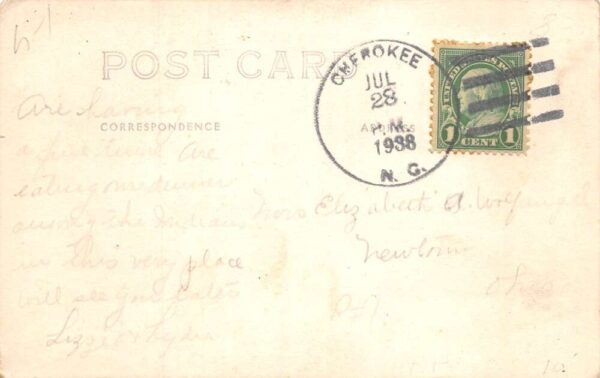 POST CARD
CHEROKEE
JUL
28
P.M.
1938
N. C.
UNITED STATES POSTAGE
1 CENT 1
CORRESPONDENCE
ADDRESS
Are having
a fine time are
eating our dinner
among the Indians
in this very place
will see you later
Lizzie & Lydia
Miss Elizabeth A.
Newtown
Ohio